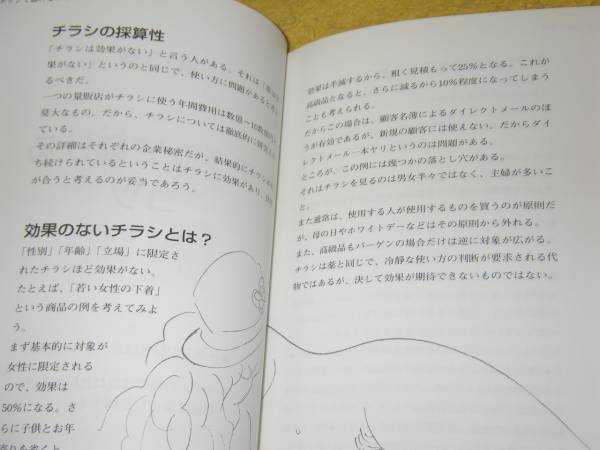 チラシの採算性
「チラシは効果がない」と言う人がある。それは「薬は
果がない」というのと同じで、使い方に問題があると考え
るべきだ。
一つの量販店がチラシに使う年間費用は数億〜10数億円
莫大なもの。だから、チラシについては徹底的に研究
ている。
その詳細はそれぞれの企業秘密だが、結果的にチラシ
ち続けられているということはチラシに効果があり、
が合うと考えるのが妥当であろう。
効果のないチラシとは？
「性別」「年齢」「立場」に限定さ
れたチラシほど効果がない。
たとえば、「若い女性の下着」
という商品の例を考えてみよ
う。
まず基本的に対象が
女性に限定される
ので、効果は
50％になる。さ
らに子供とお年
寄りを省くと、
効果は半減するから、粗く見積もって25％となる。これが
高級品となると、さらに減るから10％程度になってしまう
ことも考えられる。
だからこの場合は、顧客名簿によるダイレクトメールのほ
うが有効であるが、新規の顧客には使えない。だからダイ
レクトメール一本ヤリというのは問題がある。
ところが、この例には幾つかの落とし穴がある。
それはチラシを見るのは男女半々ではなく、主婦が多いこ
と。
また通常は、使用する人が使用するものを買うのが原則だ
が、母の日やホワイトデーなどはその原則から外れる。
また、高級品もバーゲンの場合だけは逆に対象が広がる。
チラシは薬と同じで、冷静な使い方の判断が要求される代
物ではあるが、決して効果が期待できないものではない。